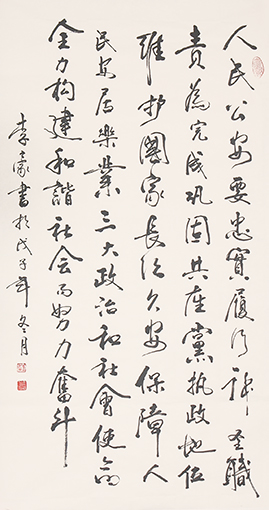 人民公安要忠實履行神圣職
責為完成巩固共産黨执政地位
維护國家長治久安保障人
民安居樂業三大政治和社會使命
全力构建和諧社会而努力奮斗
李豪書於戊子年冬月